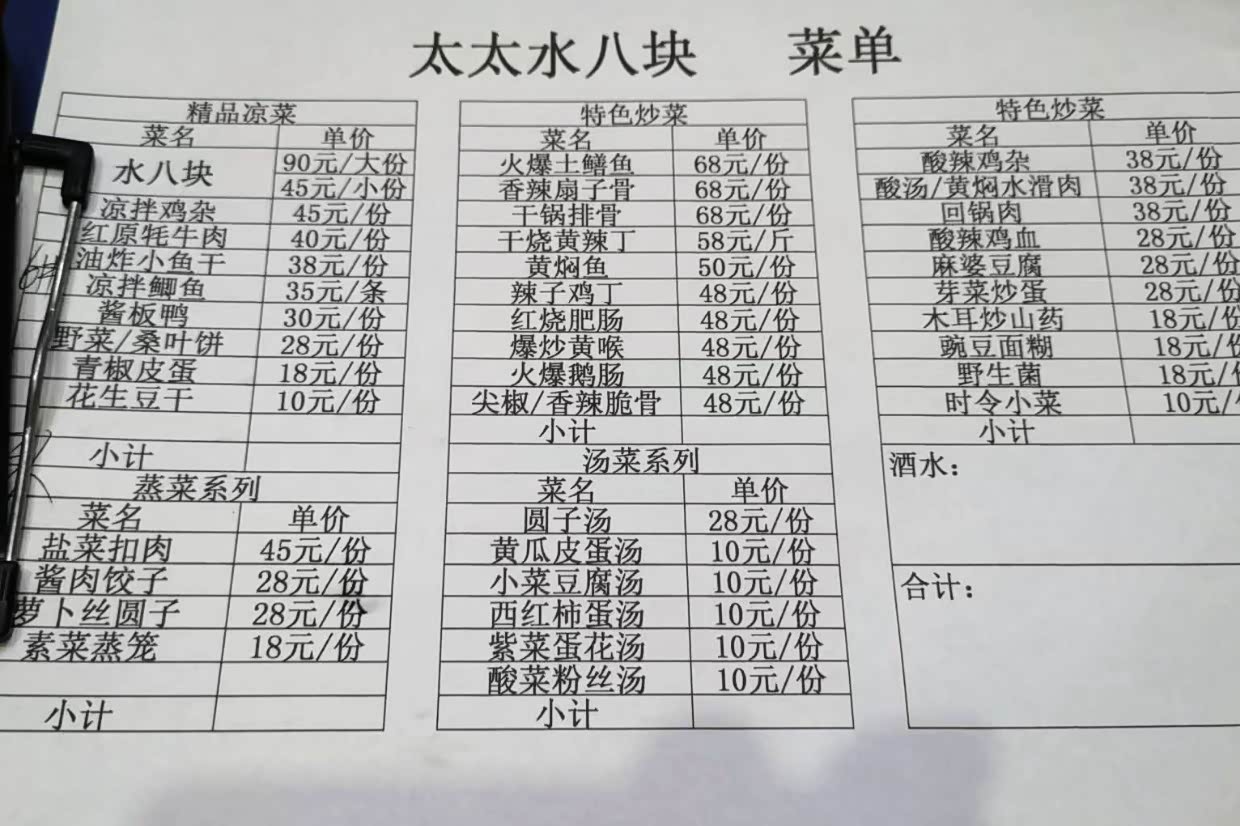 太太水八块 菜单
精品凉菜
菜名 单价
水八块 90元/大份
45元/小份
凉拌鸡杂 45元/份
红原牦牛肉 40元/份
油炸小鱼干 38元/份
凉拌鲫鱼 35元/条
酱板鸭 30元/份
野菜/桑叶饼 28元/份
青椒皮蛋 18元/份
花生豆干 10元/份
小计
蒸菜系列
菜名 单价
盐菜扣肉 45元/份
酱肉饺子 28元/份
萝卜丝圆子 28元/份
素菜蒸笼 18元/份
小计
特色炒菜
菜名 单价
火爆土鳝鱼 68元/份
香辣扇子骨 68元/份
干锅排骨 68元/份
干烧黄辣丁 58元/斤
黄焖鱼 50元/份
辣子鸡丁 48元/份
红烧肥肠 48元/份
爆炒黄喉 48元/份
火爆鹅肠 48元/份
尖椒/香辣脆骨 48元/份
小计
汤菜系列
菜名 单价
圆子汤 28元/份
黄瓜皮蛋汤 10元/份
小菜豆腐汤 10元/份
西红柿蛋汤 10元/份
紫菜蛋花汤 10元/份
酸菜粉丝汤 10元/份
小计
特色炒菜
菜名 单价
酸辣鸡杂 38元/份
酸汤/黄焖水滑肉 38元/份
回锅肉 38元/份
酸辣鸡血 28元/份
麻婆豆腐 28元/份
芽菜炒蛋 28元/份
木耳炒山药 18元/份
豌豆面糊 18元/份
野生菌 18元/份
时令小菜 10元/
小计
酒水：
合计：